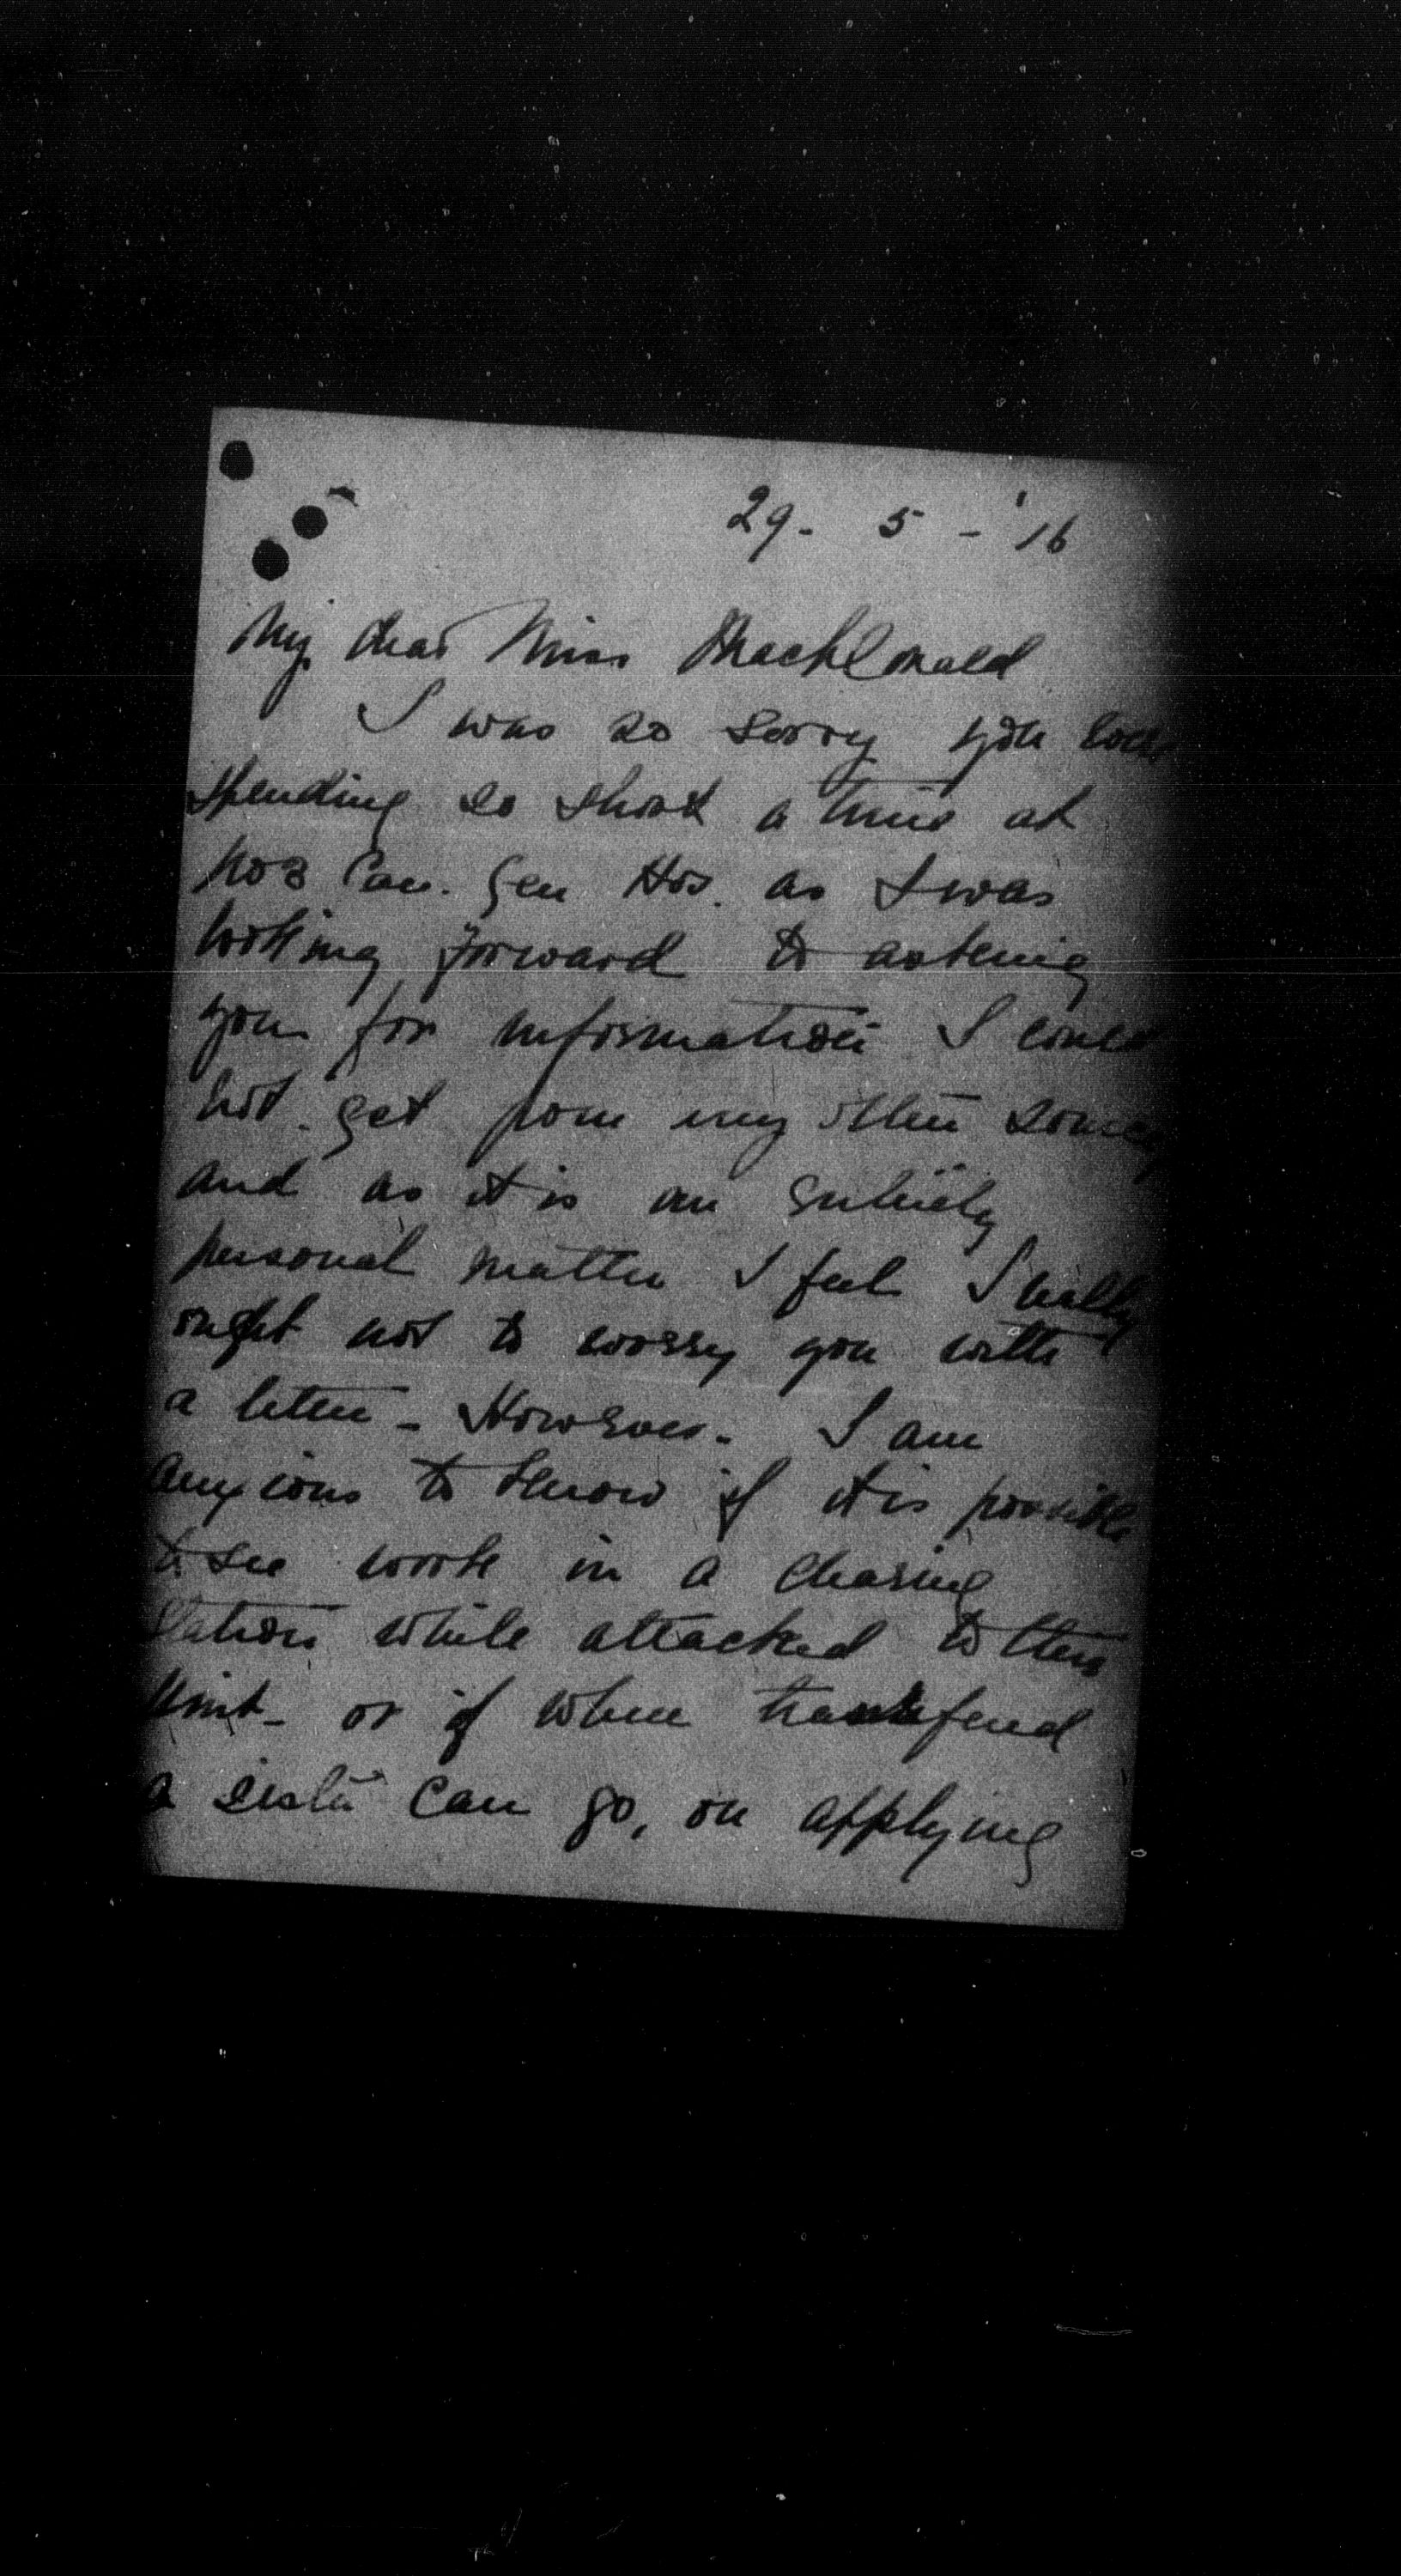 29 - 5 - '16
My dear Miss MacDonald
I was so sorry you were
spending so short a time at
No 3 Can. Gen Hos. as I was
looking forward to asking
you for information I could
not get from any other source
and as it is an entirely
personal matter I feel I really
ought not to worry you with
a letter - However - I am
anxious to know if it is possible
to see work in a clearing
Station while attached to this
Unit - or if when transfered
a sister can go, on applying